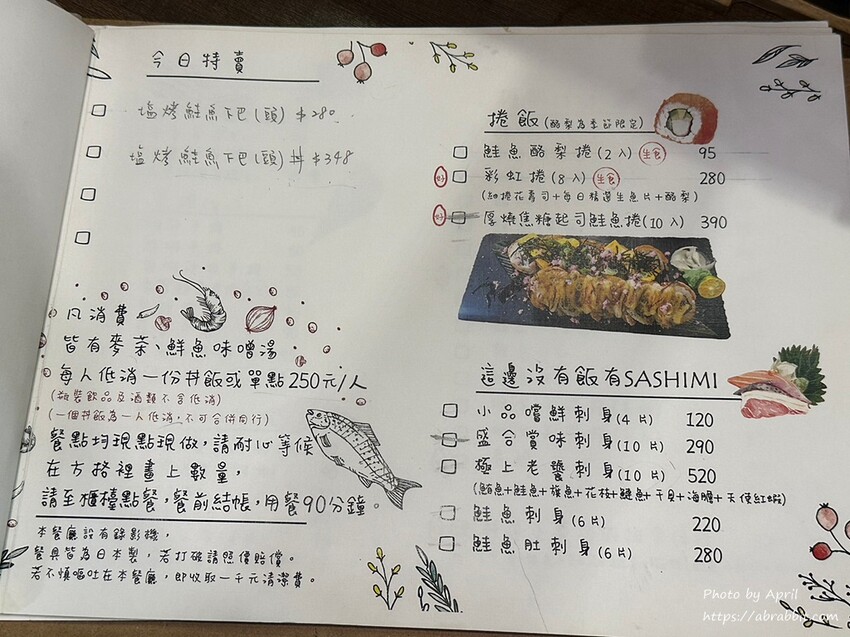 今日特賣
塩烤鮭魚下巴(頭) $280
塩烤鮭魚下巴(頭)丼 $348
凡消費
皆有麥茶、鮮魚味噌湯
每人低消一份丼飯或單點250元/人
(瓶裝飲品及酒類不含低消)
(一個丼飯為一人低消,不可合併同行)
餐點均現點現做,請耐心等候
在方格裡畫上數量,
請至櫃檯點餐,餐前結帳,用餐90分鐘。
本餐廳設有錄影機,
餐具皆為日本製,若打破請照價賠償。
若不慎嘔吐在本餐廳,即收取一千元清潔費。
捲飯(酪梨為季節限定)
鮭魚酪梨捲(2入) 生食 95
好 彩虹捲(8入) 生食 280
(細捲花壽司+每日精選生魚片+酪梨)
好 厚燒焦糖起司鮭魚捲(10入) 390
這邊沒有飯有SASHIMI
小品嚐鮮刺身(4片) 120
盛合賞味刺身(10片) 290
極上老饕刺身(10片) 520
(鮪魚+鮭魚+旗魚+花枝+鰱魚+干貝+海膽+天使紅蝦)
鮭魚刺身(6片) 220
鮭魚肚刺身(6片) 280
Photo by April
https://abrabbit.com